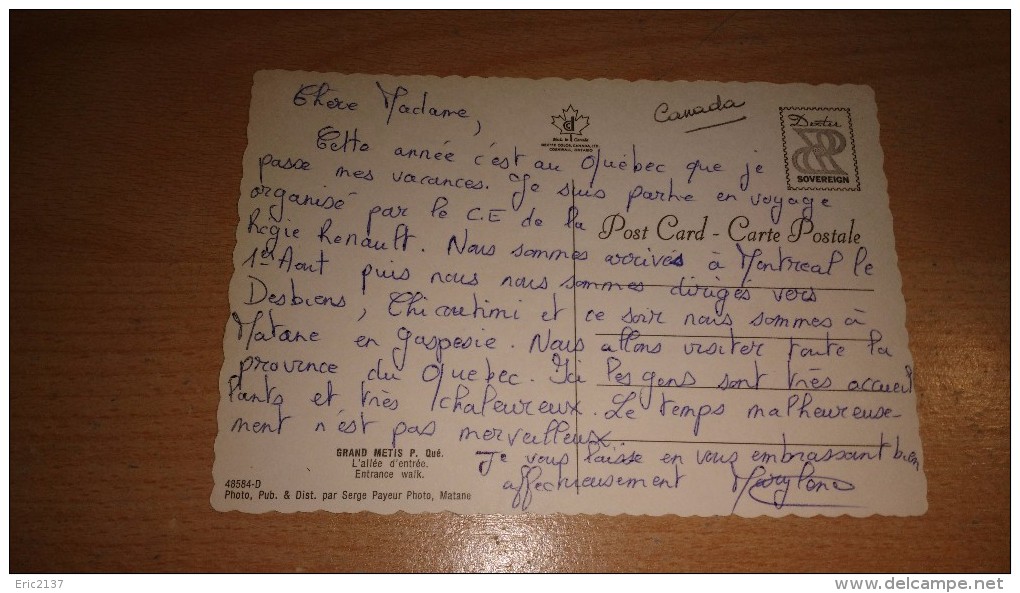 Chère Madame,
Canada
Cette année c'est au Québec que je
passe mes vacances. Je suis partie en voyage
organisé par le C.E de la
Régie Renault. Nous sommes arrivés à Montreal le
1er Aout puis nous nous sommes dirigés vers
Desbiens, Chicoutimi et ce soir nous sommes à
Matane en gaspesie. Nous allons visiter toute la
province du Quebec. Ici les gens sont très accueil
lants et très chaleureux. Le temps malheureuse-
ment n'est pas merveilleux.
Je vous laisse en vous embrassant bien
affectueusement
SOVEREIGN
Post Card - Carte Postale
GRAND METIS P. Qué.
L'allée d'entrée.
Entrance walk.
48584-D
Photo, Pub. & Dist. par Serge Payeur Photo, Matane
Eric2137
www.delcampe.net